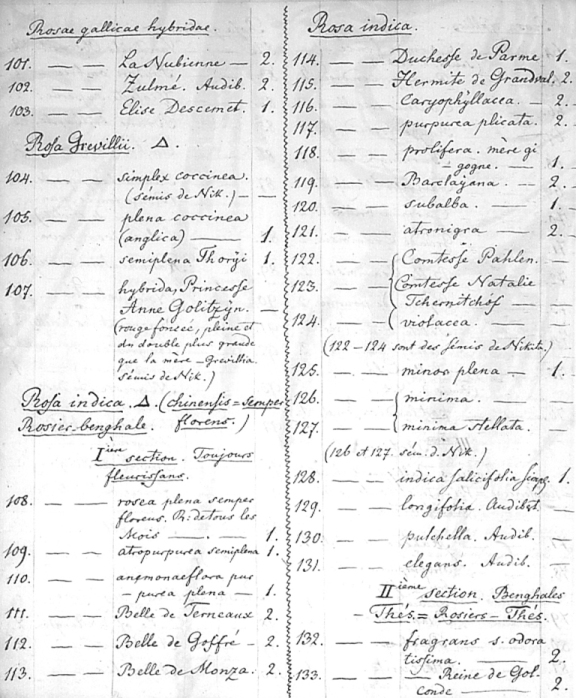 Rosae gallicae hybridae.
101. — — La Nubienne — 2.
102. — — Zulmé. Audib. 2.
103. — — Elise Descemet. 1.
Rosa Grevillii. Δ.
104. — — simplex coccinea
(sémis de Nik.) — —
105. — — plena coccinea
(anglica) — 1.
106. — — semiplena Thorÿi 1.
107. — — hybrida, Princesse
Anne Golitzÿn. —
(rouge foncée, pleine et
du double plus grande
que la mère – Grevillia
sémis de Nik.)
Rosa indica. Δ. (chinensis = semper
Rosier-benghale. florens.)
Iière section. Toujours
fleurissans.
108. — — rosea plena semper
florens. R: de tous les
Mois — 1.
109. — — atropurpurea semiplena 1.
110. — — anemonaeflora pur
– purea plena — 1.
111. — — Belle de Terneaux 2.
112. — — Belle de Goffré — 2.
113. — — Belle de Monza. 2.
Rosa indica.
114. — — Duchesse de Parme 1.
115. — — Hermite de Grandval. 2.
116. — — Caryophyllacea. — 2.
117. — — purpurea plicata. 2.
118. — — prolifera. mere gi
= gogne. — 1.
119. — — Barclayana. — 2.
120. — — subalba. — 1.
121. — — atronigra — 2.
122. — — Comtesse Pahlen. —
123. — — Comtesse Natalie
Tchernitchof —
124. — — violacea. — —
(122–124 sont des sémis de Nikita.)
125. — — minor plena — 1.
126. — — minima.
127. — — minima stellata.
(126 et 127. sém. d. Nik.)
128. — — indica salicifolia 1.
129. — — longifolia. Audibert. —
130. — — pulchella. Audib. —
131. — — elegans. Audib. —
IIième section. Benghales
– Thés. = Rosiers – Thés.
132. — — fragrans s. odora
tissima. — 2.
133. — — Reine de Gol
conde — 2.